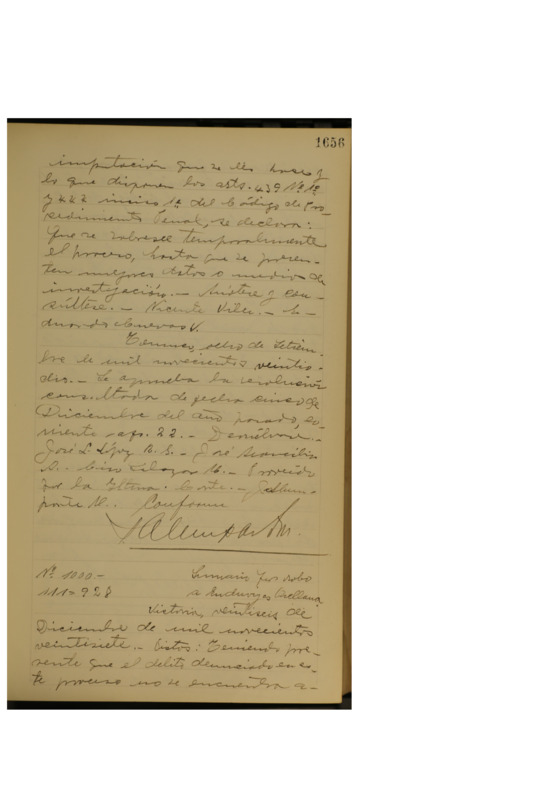 1656
imputación que se les hace y
lo que disponen los arts. 439 Nº 1º
y 442 inciso 1º del Código de Pro-
cedimiento Penal, se declara:
Que se sobresee temporalmente
el proceso, hasta que se presen-
ten mejores datos o medios de
investigación.- Anótese y con-
súltese.- Vicente Vilu.- E-
duardo Cuevas V.
Temuco, ocho de Setiem-
bre de mil novecientos veintio-
cho.- Se aprueba la resolución
consultada de fecha cinco de
Diciembre del año pasado, co-
rriente a fs. 22.- Devuélvase.-
José L. López U. S.- José Arancibia
S. Ciro Salazar M.- Proveído
por la Iltma. Corte.-
Conforme
Nº 1000.-
Sumario por robo
111=928
a Orellana
Victoria, veintiseis de
Diciembre de mil novecientos
veintisiete.- Vistos: Teniendo pre-
sente que el delito denunciado en es-
te proceso no se encuentra a-